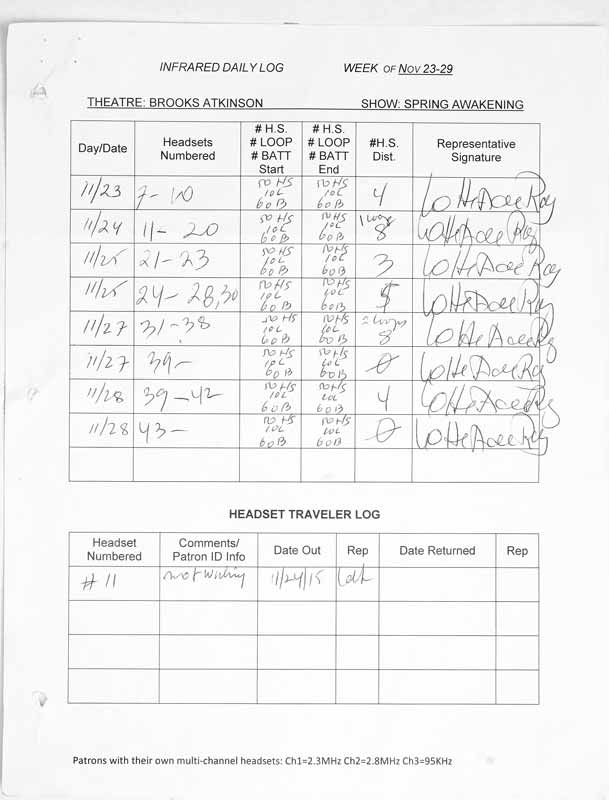 INFRARED DAILY LOG WEEK OF NOV 23-29
THEATRE: BROOKS ATKINSON SHOW: SPRING AWAKENING
Day/Date Headsets Numbered # H.S. # LOOP # BATT Start # H.S. # LOOP # BATT End #H.S. Dist. Representative Signature
11/23 7-10 50 HS 10L 60B 50 HS 10L 60B 4
11/24 11-20 50 HS 10L 60B 50 HS 10L 60B 8
11/25 21-23 50 HS 10L 60B 50 HS 10L 60B 3
11/25 24-28,30 50 HS 10L 60B 50 HS 10L 60B
11/27 31-38 50 HS 10L 60B 50 HS 10L 60B 8
11/27 39- 50 HS 10L 60B 50 HS 10L 60B 0
11/28 39-42 50 HS 10L 60B 50 HS 10L 60B 4
11/28 43- 50 HS 10L 60B 50 HS 10L 60B 0
HEADSET TRAVELER LOG
Headset Numbered Comments/ Patron ID Info Date Out Rep Date Returned Rep
# 11 not 11/24/15
Patrons with their own multi-channel headsets: Ch1=2.3MHz Ch2=2.8MHz Ch3=95KHz